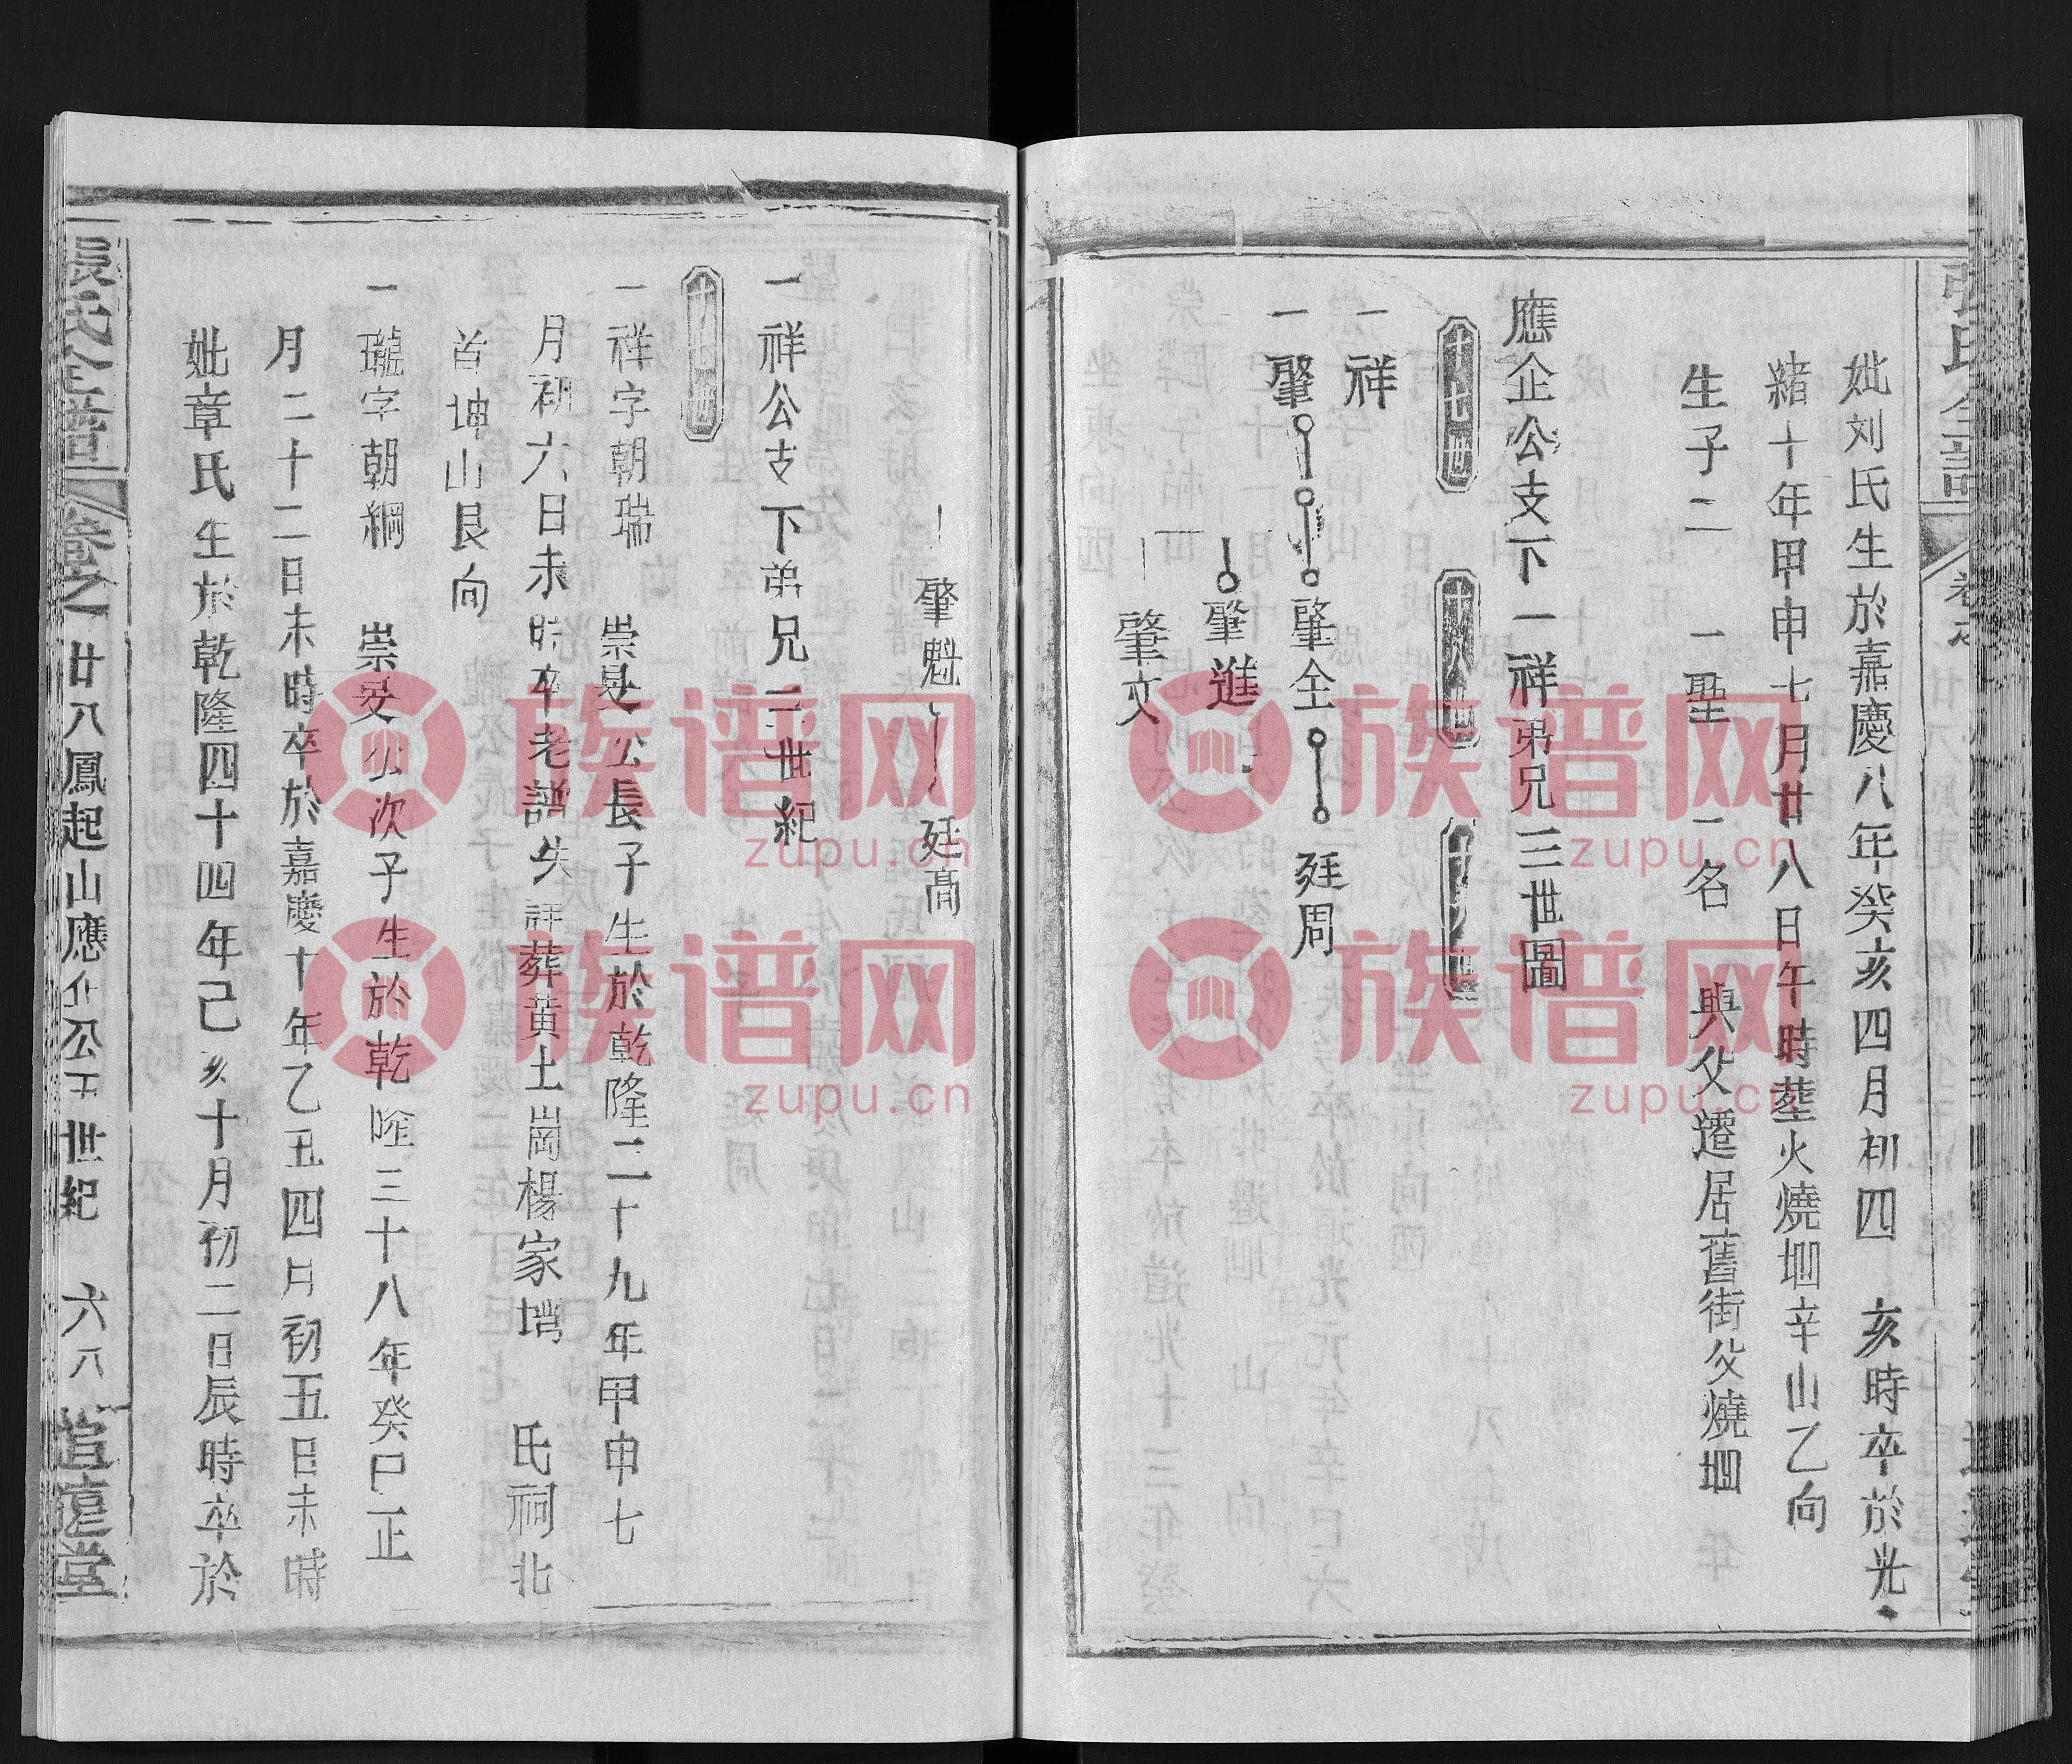 妣刘氏生於嘉慶八年癸亥四月初四 亥時卒於光
緒十年甲申七月廿八日午時塟火燒坵辛山乙向
生子二 一聖 一名 與父遷居舊街父燒坵
應企公支下一祥弟兄三世圖
十七世 十八世
一祥
一肇 肇全 廷周
肇進
肇文
肇魁 廷高
一祥公支下弟兄三世紀
十七世
一祥字朝瑞 崇旻公長子生於乾隆二十九年甲申七
月初六日未時卒老譜失詳葬黄土崗楊家塆 氏祠北
首坤山艮向
一瓏字朝綱 崇旻公次子生於乾隆三十八年癸巳正
月二十二日未時卒於嘉慶十年乙丑四月初五日未時
妣章氏生於乾隆四十四年己亥十月初二日辰時卒於
張氏全譜 卷之一 廿八鳳起山應企公五世紀 六八 追遠堂
族谱网
zupu.cn
族谱网
zupu.cn
族谱网
zupu.cn
族谱网
zupu.cn